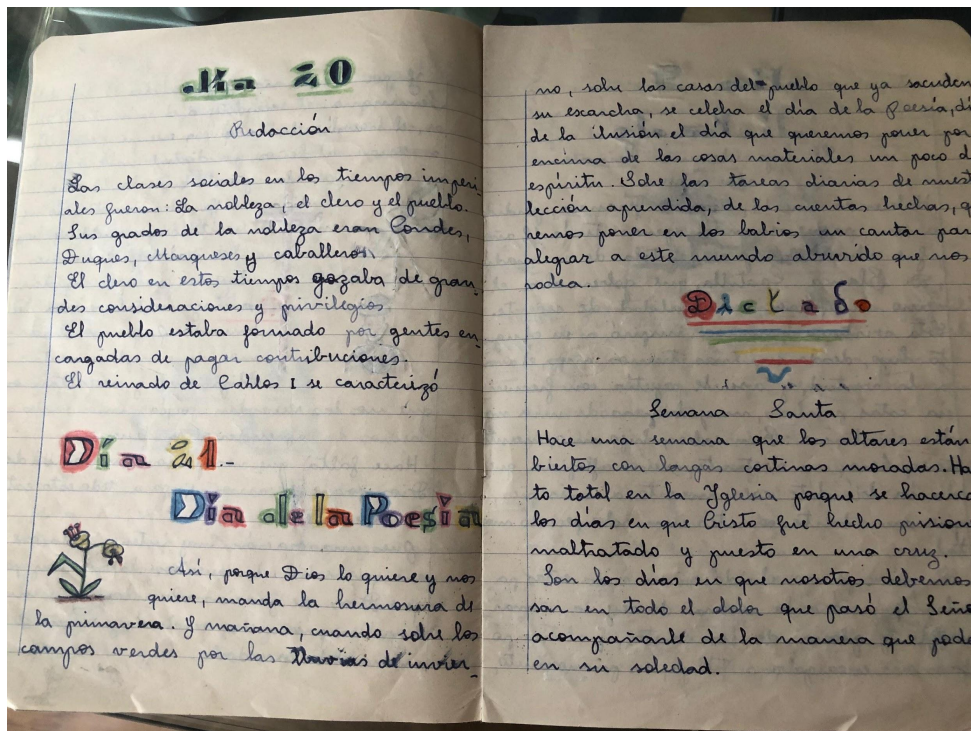 Día 20
Redacción
Las clases sociales en los tiempos imperi-
ales fueron: La nobleza, el clero y el pueblo.
Sus grados de la nobleza eran Condes,
Duques, Marqueses y caballeros.
El clero en estos tiempos gozaba de gran-
des consideraciones y privilegios.
El pueblo estaba formado por gentes en-
cargadas de pagar contribuciones.
El reinado de Carlos I se caracterizó
Día 21.-
Día de la Poesia
Así, porque Dios lo quiere y nos
quiere, manda la hermosura de
la primavera. Y mañana, cuando sobre los
campos verdes por las lluvias de invier-
no, sobre las casas del pueblo que ya sacuden
su escarcha, se celebra el día de la Poesía, dí
de la ilusión el día que queremos poner por
encima de las cosas materiales un poco d
espíritu. Sobre las tareas diarias de nuest
lección aprendida, de las cuentas hechas, q
remos poner en los labios un cantar par
alegrar a este mundo aburrido que nos
rodea.
Dictado
Semana Santa
Hace una semana que los altares están
biertos con largas cortinas moradas. Ha
to total en la Yglesia porque se hacerca
los días en que Cristo fue hecho prision
maltratado y puesto en una cruz.
Son los días en que nosotros debemos
sar en todo el dolor que pasó el Seño
acompañarle de la manera que pod
en su soledad.